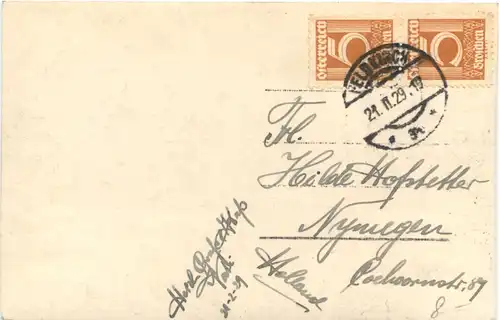 Österreich 5 Groschen
Österreich 5 Groschen
FELDKIRCH
21.II.29.19
Frl.
Hilde Hofstetter
Nymegen
Holland
Coehoornstr. 87
21-2-29